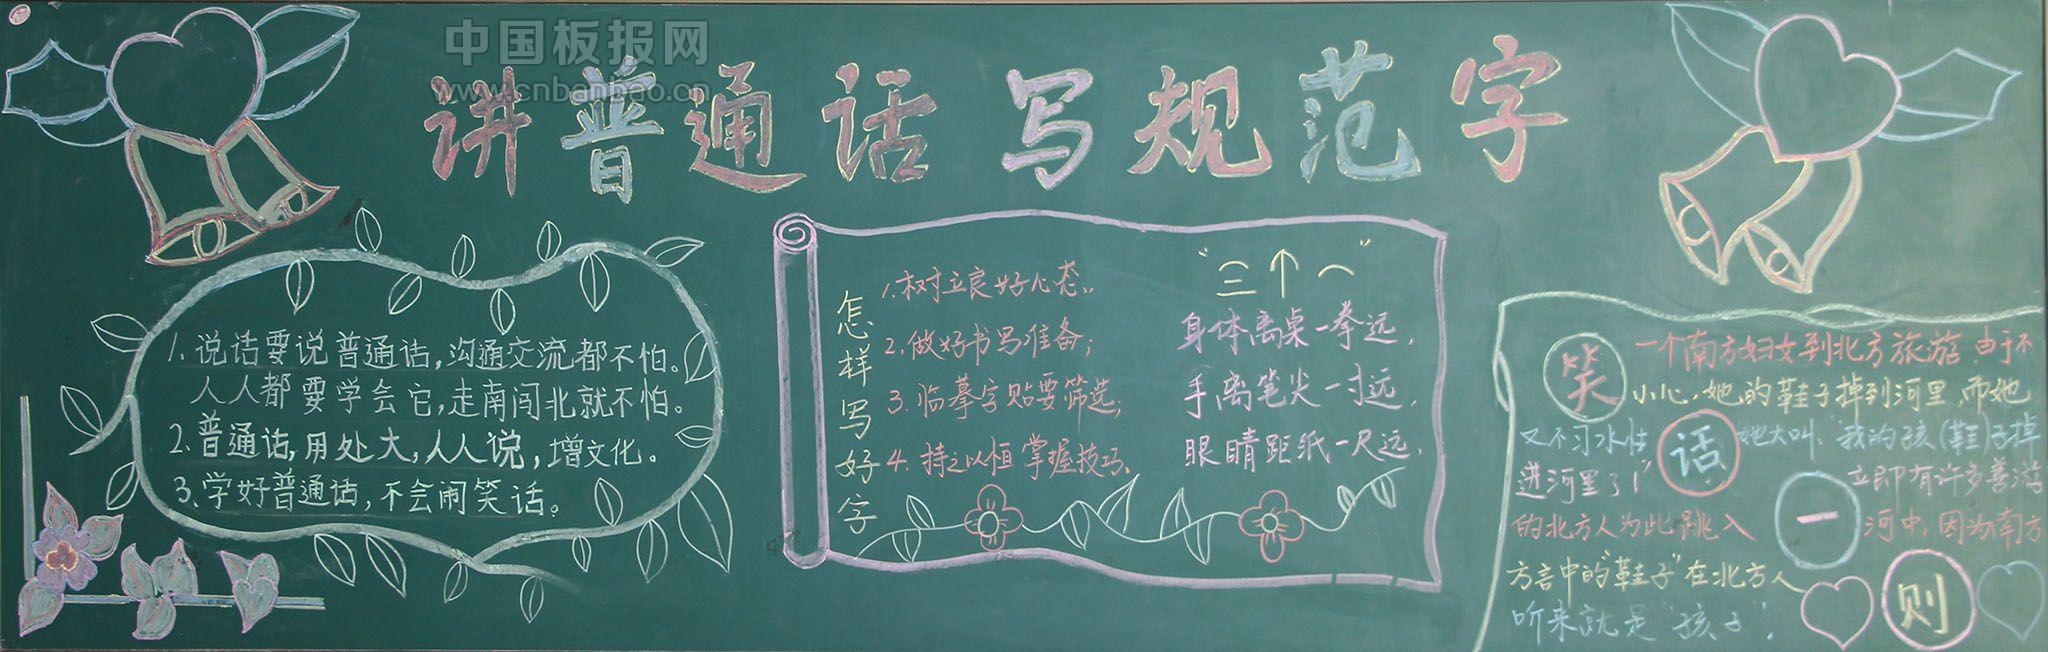 中国板报网
www.cnbanbao.cn
讲普通话 写规范字
1. 说话要说普通话,沟通交流都不怕。
人人都要学会它,走南闯北就不怕。
2. 普通话,用处大,人人说,增文化。
3. 学好普通话,不会闹笑话。
怎样写好字
1. 树立良好心态。
2. 做好书写准备;
3. 临摹字贴要筛选;
4. 持之以恒掌握技巧、
“三个一”
身体离桌一拳远,
手离笔尖一寸远,
眼睛距纸一尺远,
笑话一则
一个南方妇女到北方旅游 由于不
小心,她的鞋子掉到河里,而她
又不习水性 她大叫:“我的孩(鞋)子掉
进河里了!” 立即有许多善游
的北方人为此跳入 河中,因为南方
方言中的“鞋子”在北方人
听来就是“孩子”!